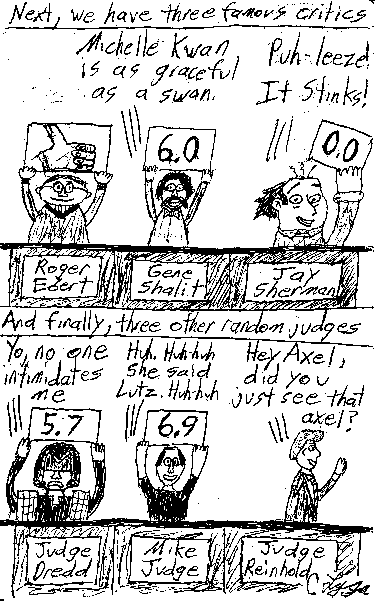 Next, we have three famous critics
Michelle Kwan
is as graceful
as a swan.
Puh-leeze!
It Stinks!
6.0
0.0
Roger
Ebert
Gene
Shalit
Jay
Sherman
And finally, three other random judges
Yo, no one
intimidates
me
Huh, Huh-huh
She said
Lutz. Huh-huh
Hey Axel,
did you
just see that
axel?
5.7
6.9
Judge
Dredd
Mike
Judge
Judge
Reinhold